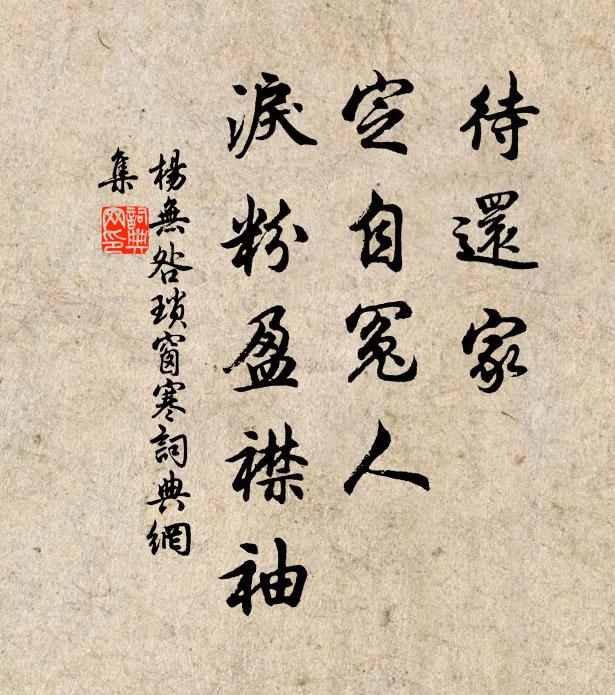 待還家
定自冤人
淚粉盈襟袖
楊無咎瑣窗寒詞典網
集
詞典
网印